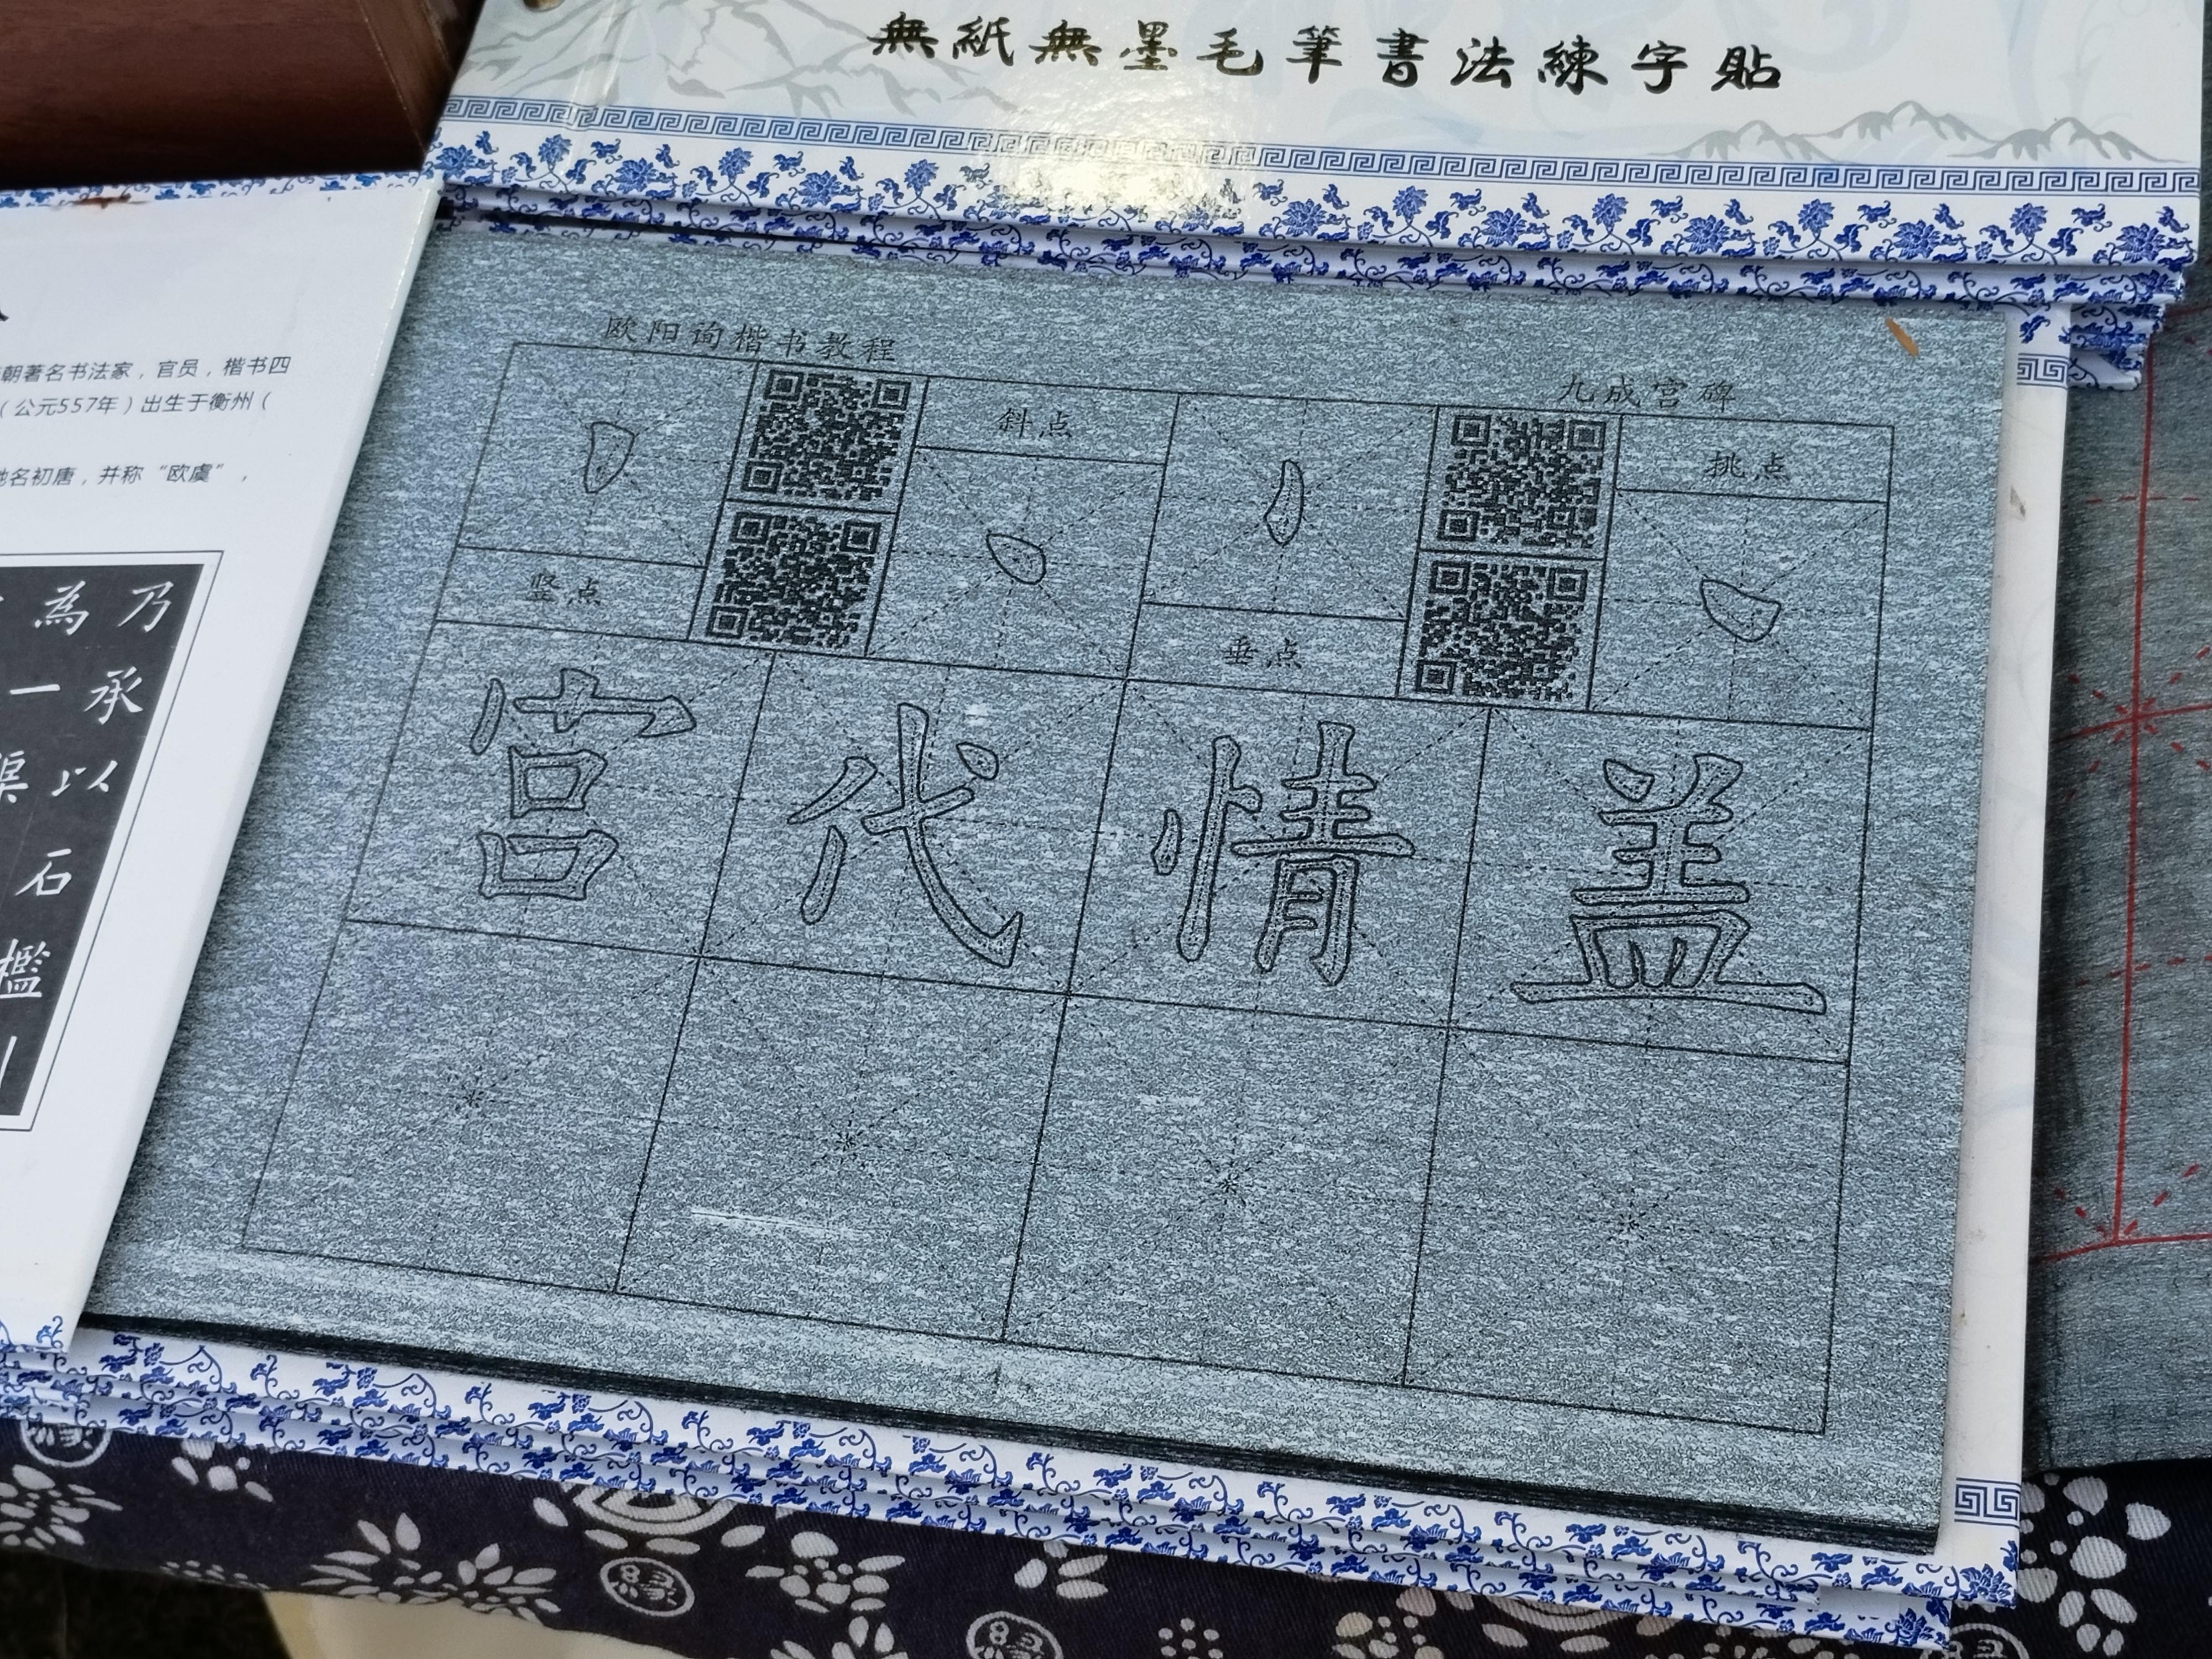 無紙無墨毛筆書法練字貼
朝著名书法家，官员，楷书四
（公元557年）出生于衡州（
名初唐，并称“欧虞”，
乃承以石
為一
檻
欧阳询楷书教程
九成宫碑
竖点
斜点
垂点
挑点
宫代情盖
緣
緣